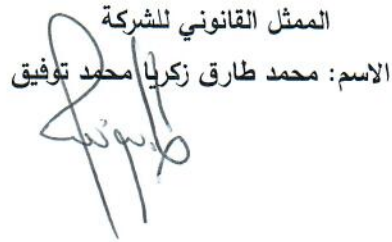 الممثل القانوني للشركة
الاسم: محمد طارق زكريا محمد توفيق